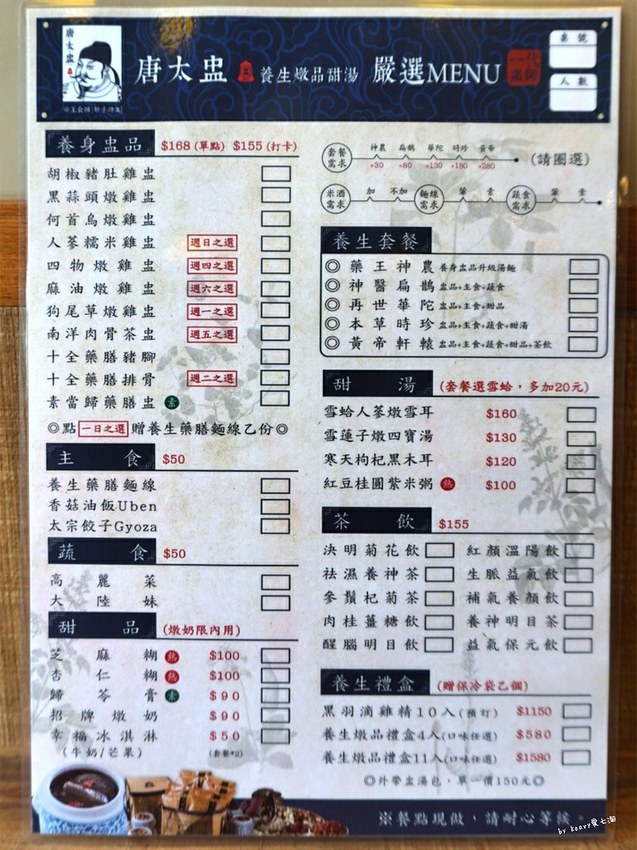 唐太盅
唐太盅 養生燉品甜湯 嚴選MENU 一代盅師
桌號
人數
養身盅品 $168(單點) $155(打卡)
胡椒豬肚雞盅
黑蒜頭燉雞盅
何首烏燉雞盅
人蔘糯米雞盅 週日之選
四物燉雞盅 週四之選
麻油燉雞盅 週六之選
狗尾草燉雞盅 週一之選
南洋肉骨茶盅 週五之選
十全藥膳豬腳
十全藥膳排骨 週二之選
素當歸藥膳盅 素
◎點 一日之選 贈養生藥膳麵線乙份◎
主食 $50
養生藥膳麵線
香菇油飯Uben
太宗餃子Gyoza
蔬食 $50
高麗菜
大陸妹
甜品 (燉奶限內用)
芝麻糊 熱 $100
杏仁糊 熱 $100
歸苓膏 素 $90
招牌燉奶 $90
幸福冰淇淋 $50
(牛奶/芒果) (套餐*2)
套餐需求 神農 +30 扁鵲 +80 華陀 +130 時珍 +180 黃帝 +280 (請圈選)
米酒需求 加 不加 麵線需求 葷 素 蔬食需求 葷 素
養生套餐
◎藥王神農 養身盅品升級湯麵
◎神醫扁鵲 盅品+主食+蔬食
◎再世華陀 盅品+主食+甜品
◎本草時珍 盅品+主食+蔬食+甜湯
◎黃帝軒轅 盅品+主食+蔬食+甜品+茶飲
甜湯 (套餐選雪蛤，多加20元)
雪蛤人蔘燉雪耳 $160
雪蓮子燉四寶湯 $130
寒天枸杞黑木耳 $120
紅豆桂圓紫米粥 熱 $100
茶飲 $155
決明菊花飲 紅顏溫陽飲
祛濕養神茶 生脈益氣飲
參鬚杞菊茶 補氣養顏飲
肉桂薑糖飲 養神明目茶
醒腦明目飲 益氣保元飲
養生禮盒 (贈保冷袋乙個)
黑羽滴雞精10入(預訂) $1150
養生燉品禮盒4入(口味任選) $580
養生燉品禮盒11入(口味任選) $1580
◎外帶盅湯包，單一價150元◎
※餐點現做，請耐心等候。